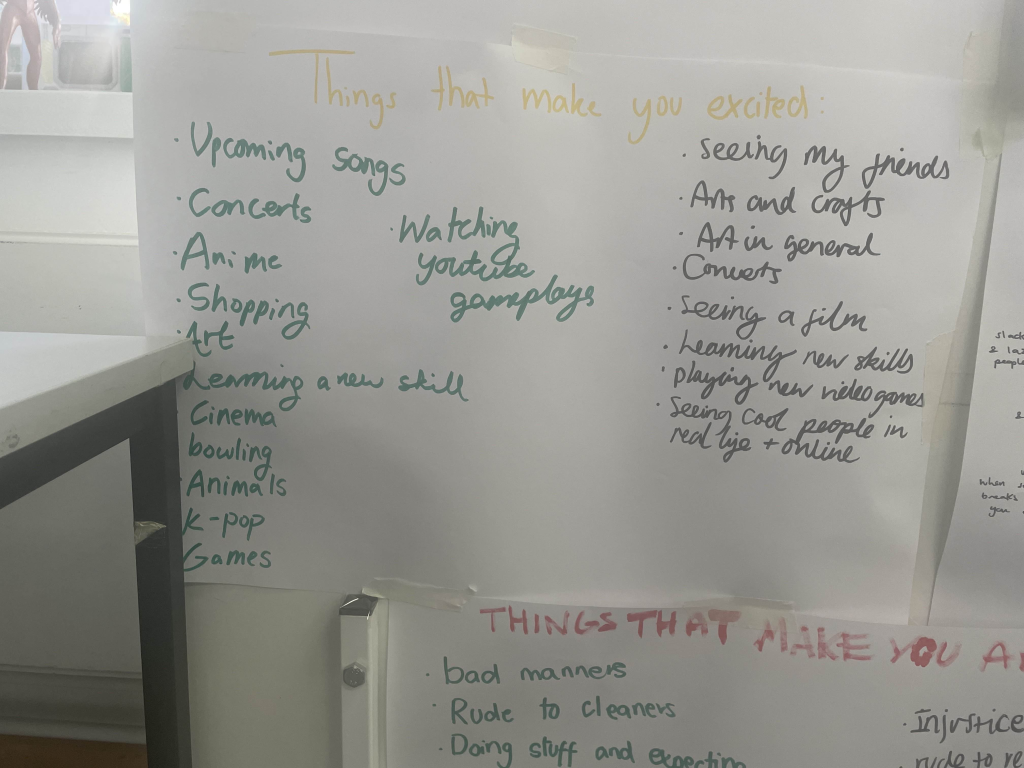 Things that make you excited:
· Upcoming songs
· Concerts
· Anime
· Shopping
· Art
Learning a new skill
Cinema
bowling
Animals
K-pop
Games
· Watching
youtube
gameplays
· Seeing my friends
· Arts and crafts
· Art in general
· Concerts
· Seeing a film
· Learning new skills
· Playing new videogames
· Seeing cool people in
real life + online
THINGS THAT MAKE YOU
· bad manners
· Rude to cleaners
· Doing stuff and expecting
· Injustice
· rude to
people
When
breaks
you